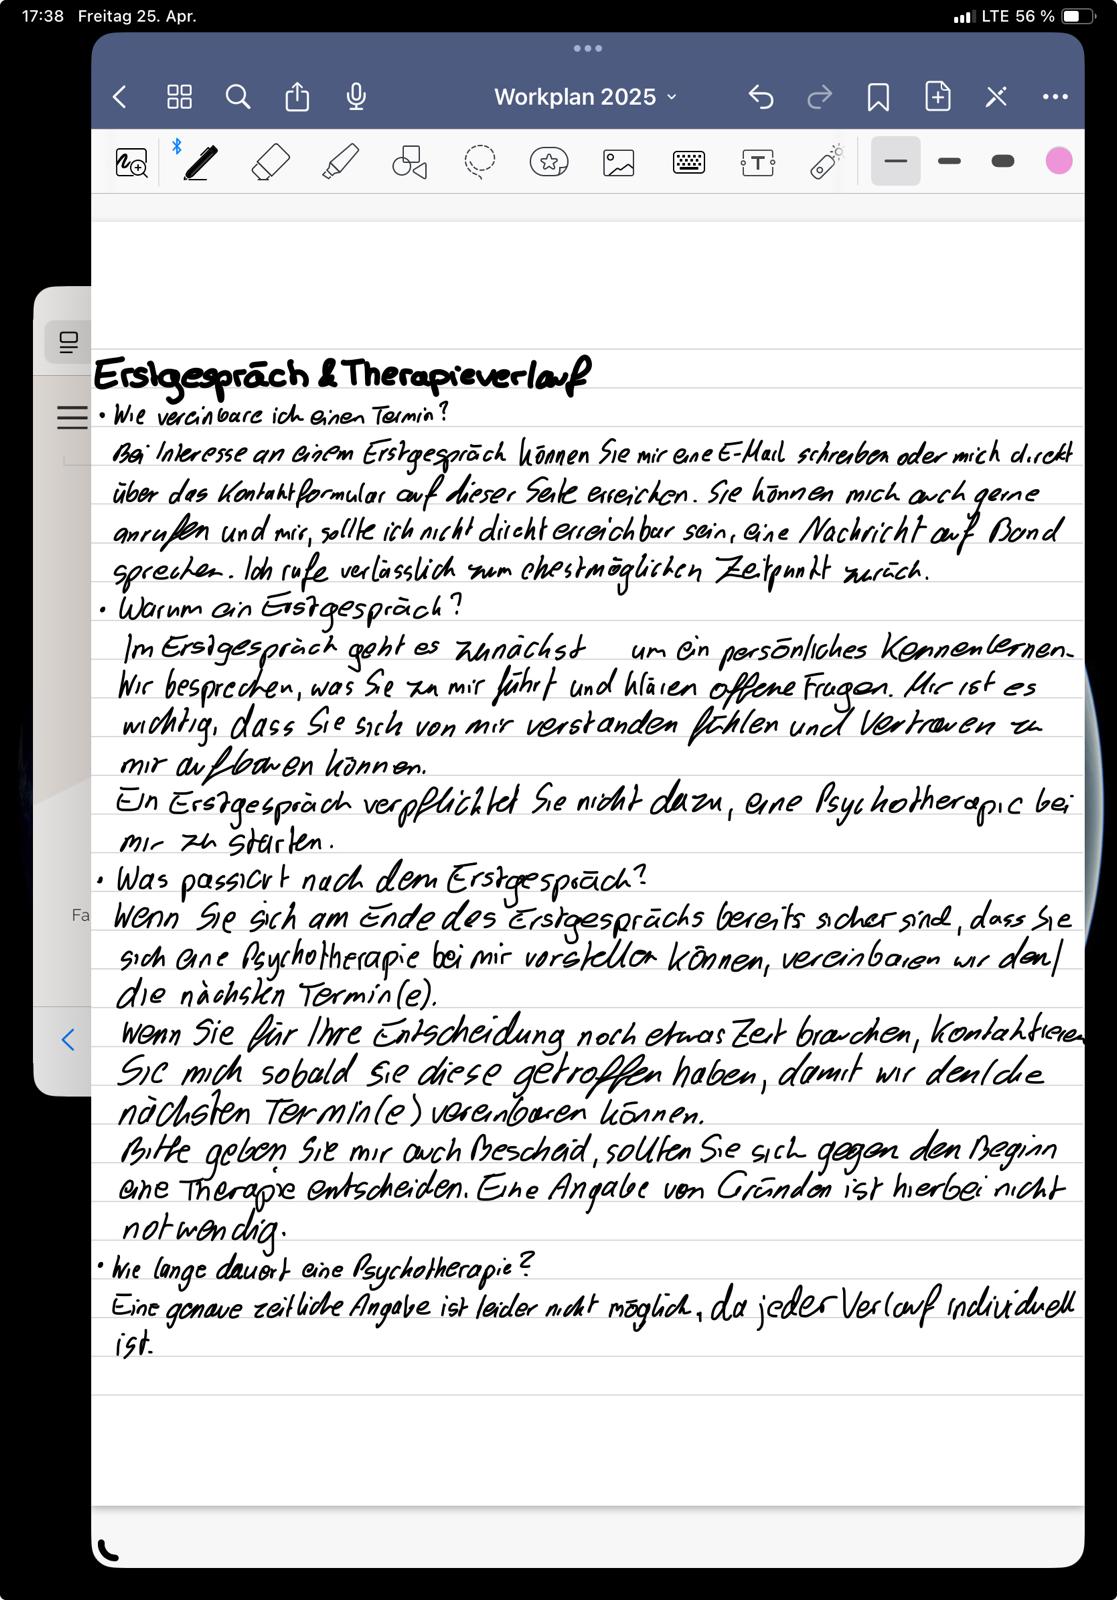 17:38 Freitag 25. Apr.
LTE 56 %
Workplan 2025
Erstgespräch & Therapieverlauf
• Wie vereinbare ich einen Termin?
Bei Interesse an einem Erstgespräch können Sie mir eine E-Mail schreiben oder mich direkt
über das Kontaktformular auf dieser Seite erreichen. Sie können mich auch gerne
anrufen und mir, sollte ich nicht direkt erreichbar sein, eine Nachricht auf Band
sprechen. Ich rufe verlässlich zum ehestmöglichen Zeitpunkt zurück.
• Warum ein Erstgespräch?
Im Erstgespräch geht es zunächst um ein persönliches Kennenlernen.
Wir besprechen, was Sie zu mir führt und klären offene Fragen. Mir ist es
wichtig, dass Sie sich von mir verstanden fühlen und Vertrauen zu
mir aufbauen können.
Ein Erstgespräch verpflichtet Sie nicht dazu, eine Psychotherapie bei
mir zu starten.
• Was passiert nach dem Erstgespräch?
Wenn Sie sich am Ende des Erstgesprächs bereits sicher sind, dass Sie
sich eine Psychotherapie bei mir vorstellen können, vereinbaren wir den/
die nächsten Termin(e).
Wenn Sie für Ihre Entscheidung noch etwas Zeit brauchen, kontaktieren
Sie mich sobald sie diese getroffen haben, damit wir den/die
nächsten Termin(e) vereinbaren können.
Bitte geben Sie mir auch Bescheid, sollten Sie sich gegen den Beginn
eine Therapie entscheiden. Eine Angabe von Gründen ist hierbei nicht
notwendig.
• Wie lange dauert eine Psychotherapie?
Eine genaue zeitliche Angabe ist leider nicht möglich, da jeder Verlauf individuell
ist.
Fa